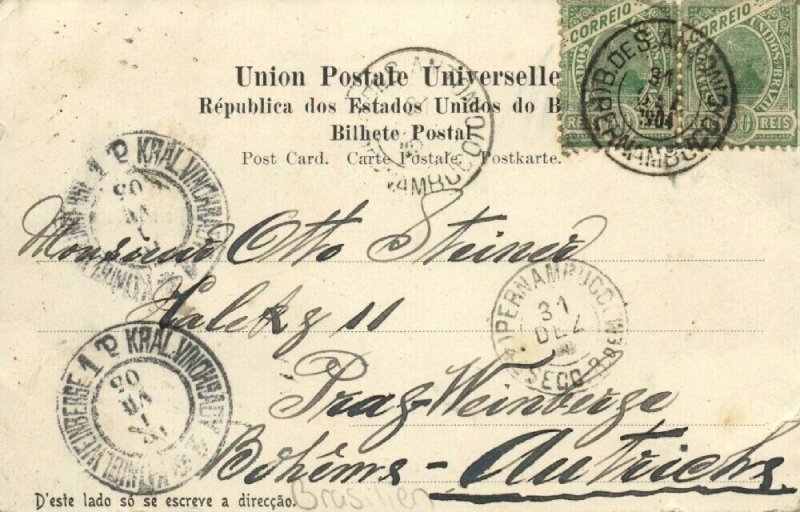 CORREIO CORREIO
REIS REIS
31
1904
PERNAMBUCO
Union Postale Universelle
Républica dos Estados Unidos do B
Bilhete Postal
Post Card. Carte Postale. Postkarte.
1 KRAL.VINOHRADY
05
Monsieur Otto Steiner
PERNAMBUCO
31
DEZ
Prag-Weinberge
1 KRAL.VINOHRADY
05
Bohême - Autriche
D'este lado só se escreve a direcção.
Brasilien